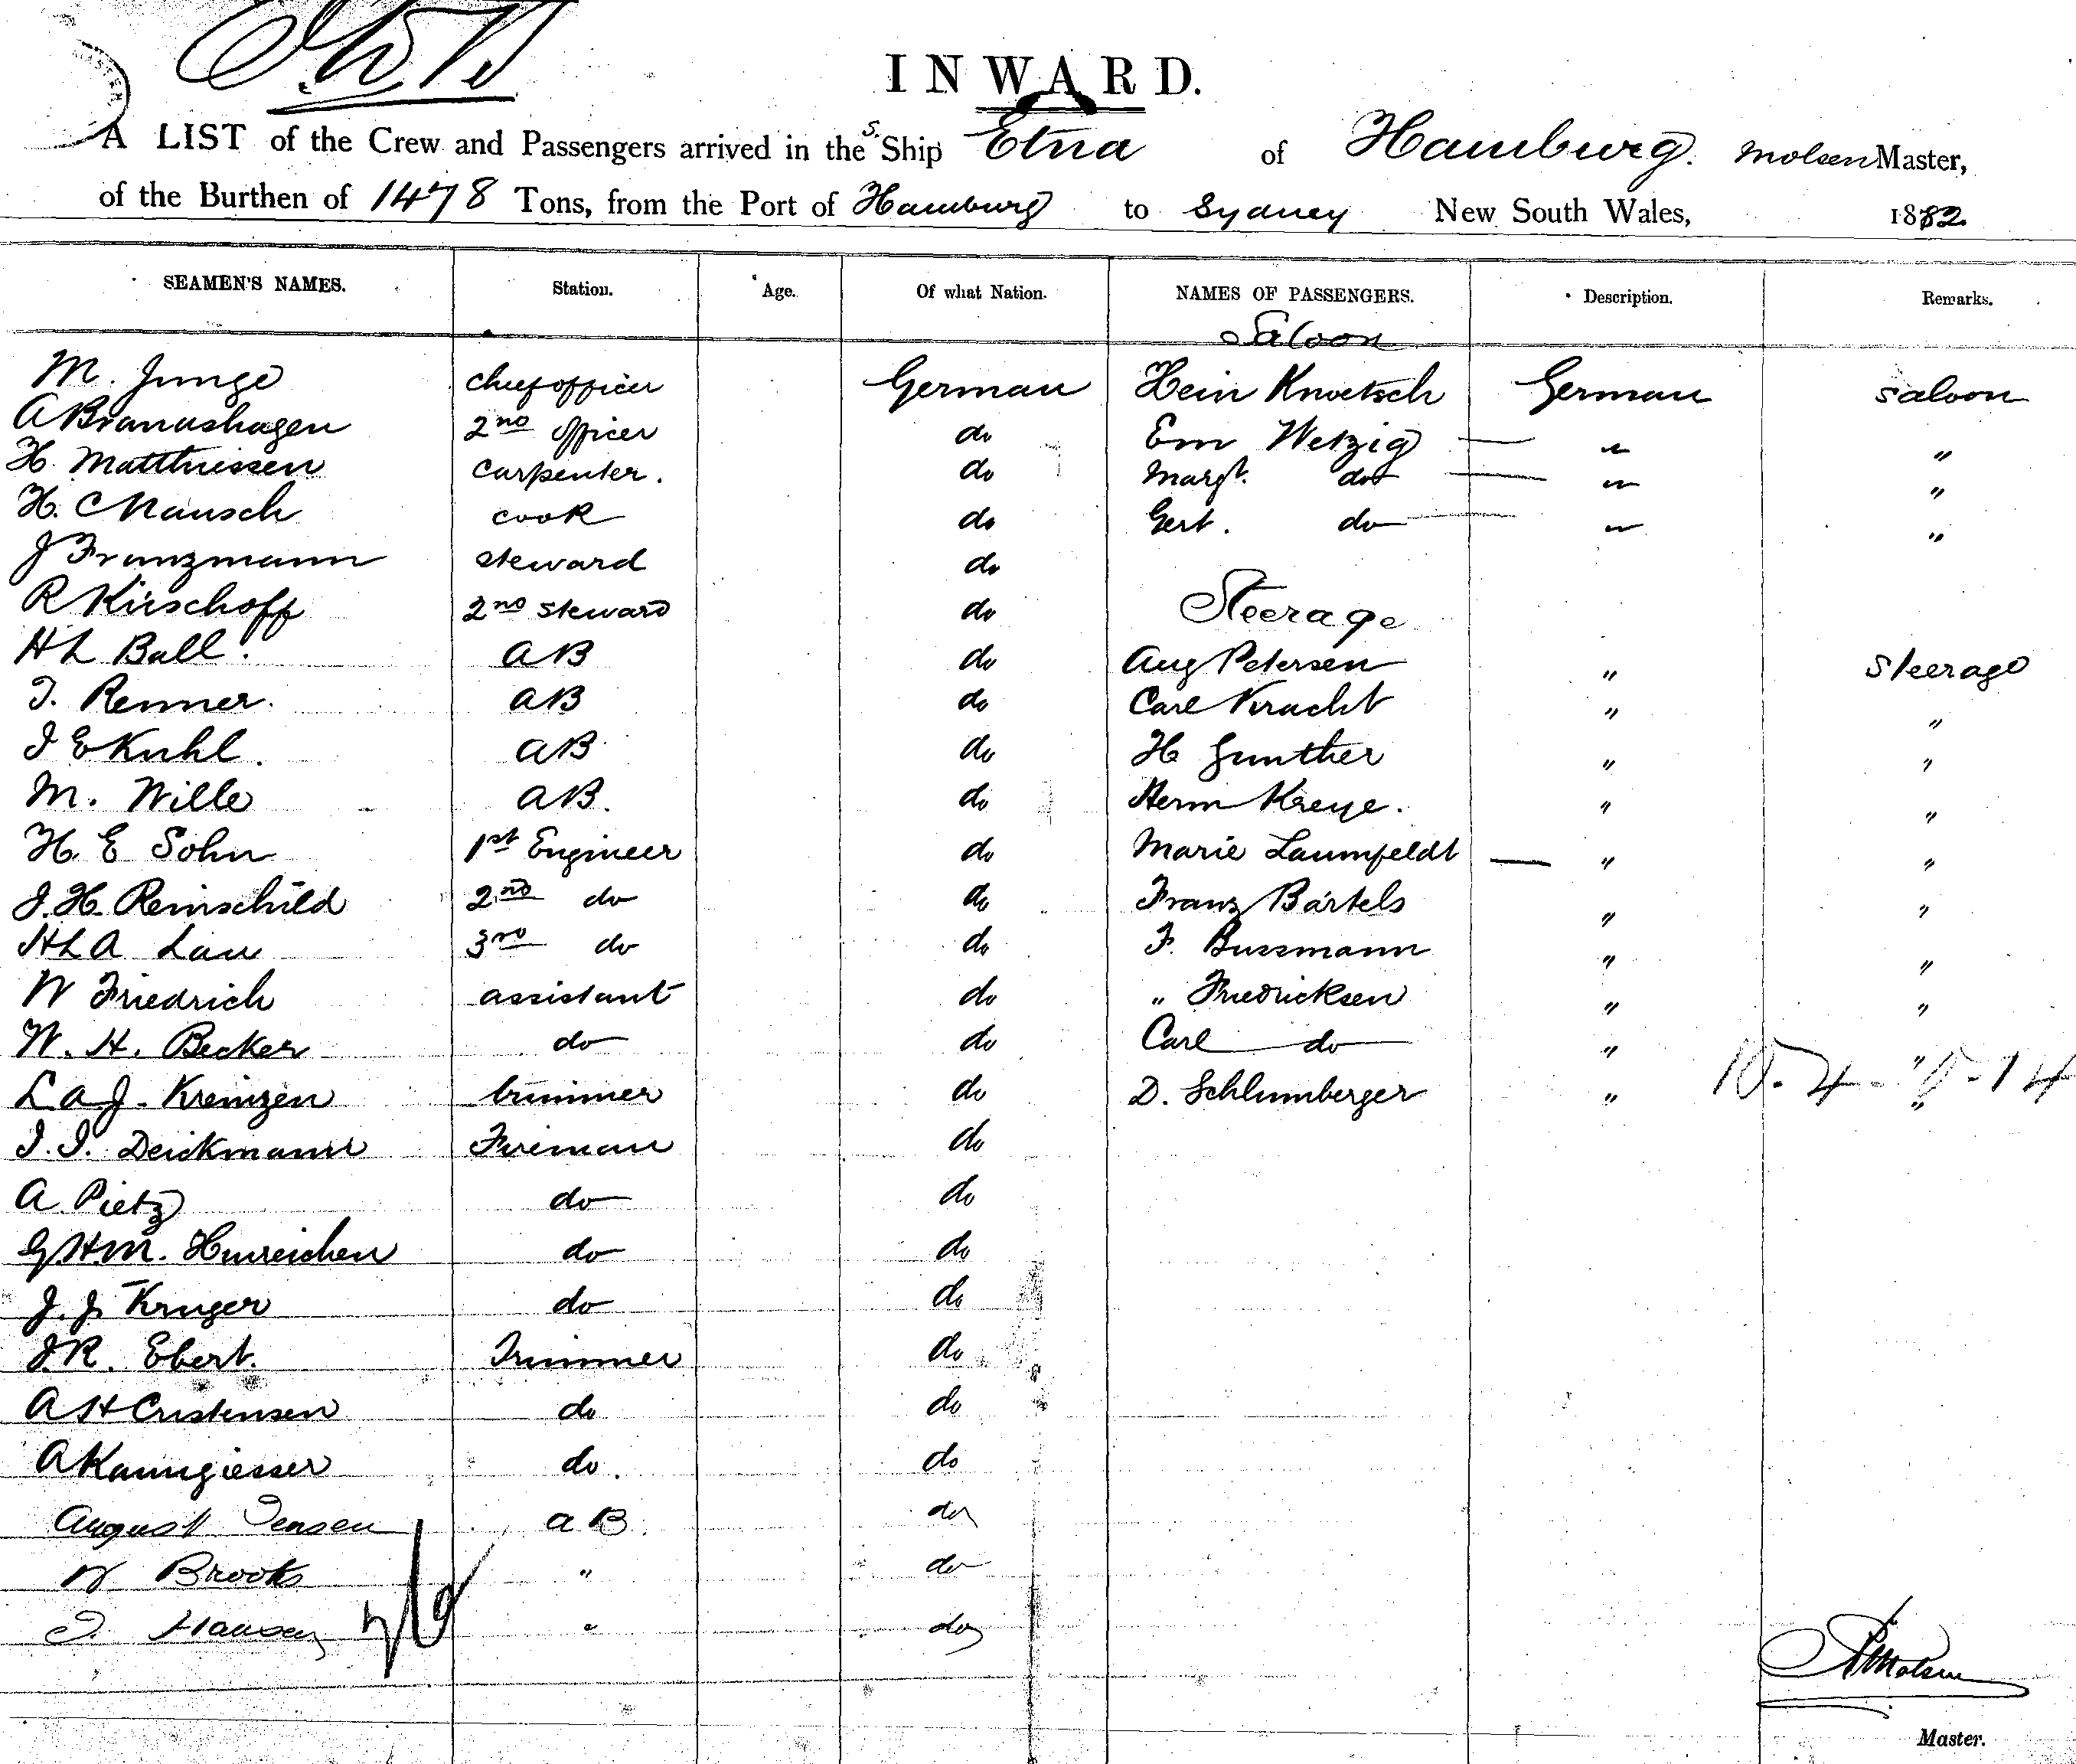 INWARD.
A LIST of the Crew and Passengers arrived in the S. Ship Etna of Hamburg. Molsen Master,
of the Burthen of 1478 Tons, from the Port of Hamburg to Sydney New South Wales, 1882.
SEAMEN'S NAMES. Station. Age. Of what Nation. NAMES OF PASSENGERS. Description. Remarks.
Saloon
M. Junge chief officer German Hein Knoetsch German saloon
A Brandshagen 2nd officer do Em Wetzig — " "
H. Matthiessen carpenter. do Margt. do — " "
H. C Mausch cook do Gert. do — " "
J Franzmann steward do
R Kirschoff 2nd steward do Steerage
H L Ball. AB do Aug Petersen " Steerage
J. Renner. AB do Carl Kracht " "
J E Kuhl. AB do H Gunther " "
M. Wille AB. do Herm Kreye. " "
H. E Sohn 1st Engineer do Marie Laumfeldt — " "
J. H. Reinschild 2nd do do Franz Bartels " "
H L A Lau 3rd do do F. Bussmann " "
W Friedrich assistant do " Friedricksen " "
W. H. Becker do do Carl do " "
L A J. Kreinzen trimmer do D. Schlumberger " "
J. J. Deickmann Fireman do
A. Pietz do do
G. H. M. Hinreichen do do
J. J. Kruger do do
J. R. Ebert. Trimmer do
A H Cristensen do do
A Kanngiesser do. do
August Jensen AB. do
W Brooks " do
J. Hansen " do
Molsen
Master.